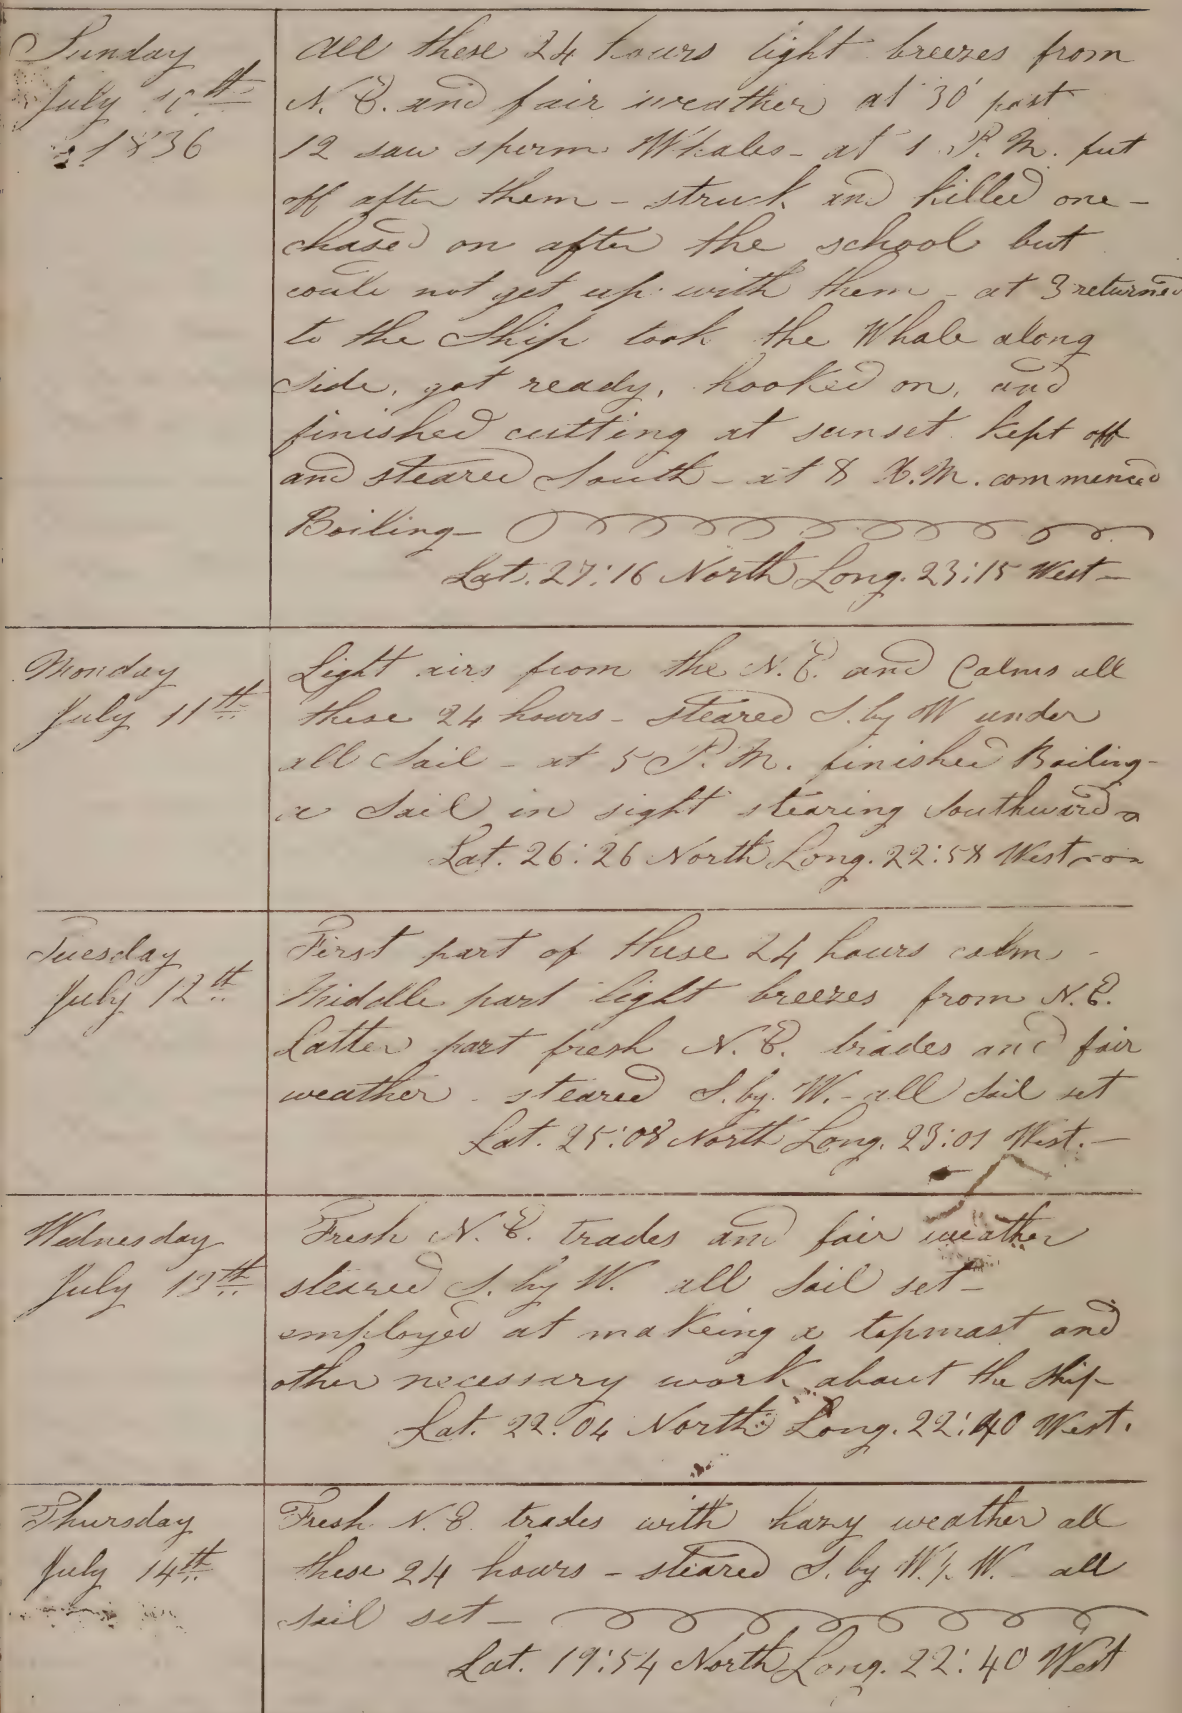 Sunday
July 10th
1836
All these 24 hours light breezes from
N. E. and fair weather at 30' past
12 saw sperm Whales - at 1 P.M. put
off after them - struck and killed one -
chased on after the school but
could not get up with them - at 3 returned
to the Ship took the Whale along
side, got ready, hooked on, and
finished cutting at sunset. kept off
and steared South - at 8 A.M. commenced
Boiling -
Lat. 27:16 North Long. 23:15 West -
Monday
July 11th
Light airs from the N.E. and Calms all
these 24 hours - steared S. by W under
all Sail - at 5 P.M. finished Boiling -
a Sail in sight stearing Southward
Lat. 26:26 North Long. 22:58 West
Tuesday
July 12th
First part of these 24 hours calm -
Middle part light breezes from N.E.
Latter part fresh N.E. trades and fair
weather - steared S. by. W. - all Sail set
Lat. 25:08 North Long. 23:01 West. -
Wednesday
July 13th
Fresh N.E. trades and fair weather
steared S. by W. all Sail set -
employed at makeing a topmast and
other necessary work about the Ship -
Lat. 22:04 North Long. 22:40 West.
Thursday
July 14th
Fresh N.E. trades with hazy weather all
these 24 hours - steared S. by W. ½ W. - all
Sail set -
Lat. 19:54 North Long. 22:40 West